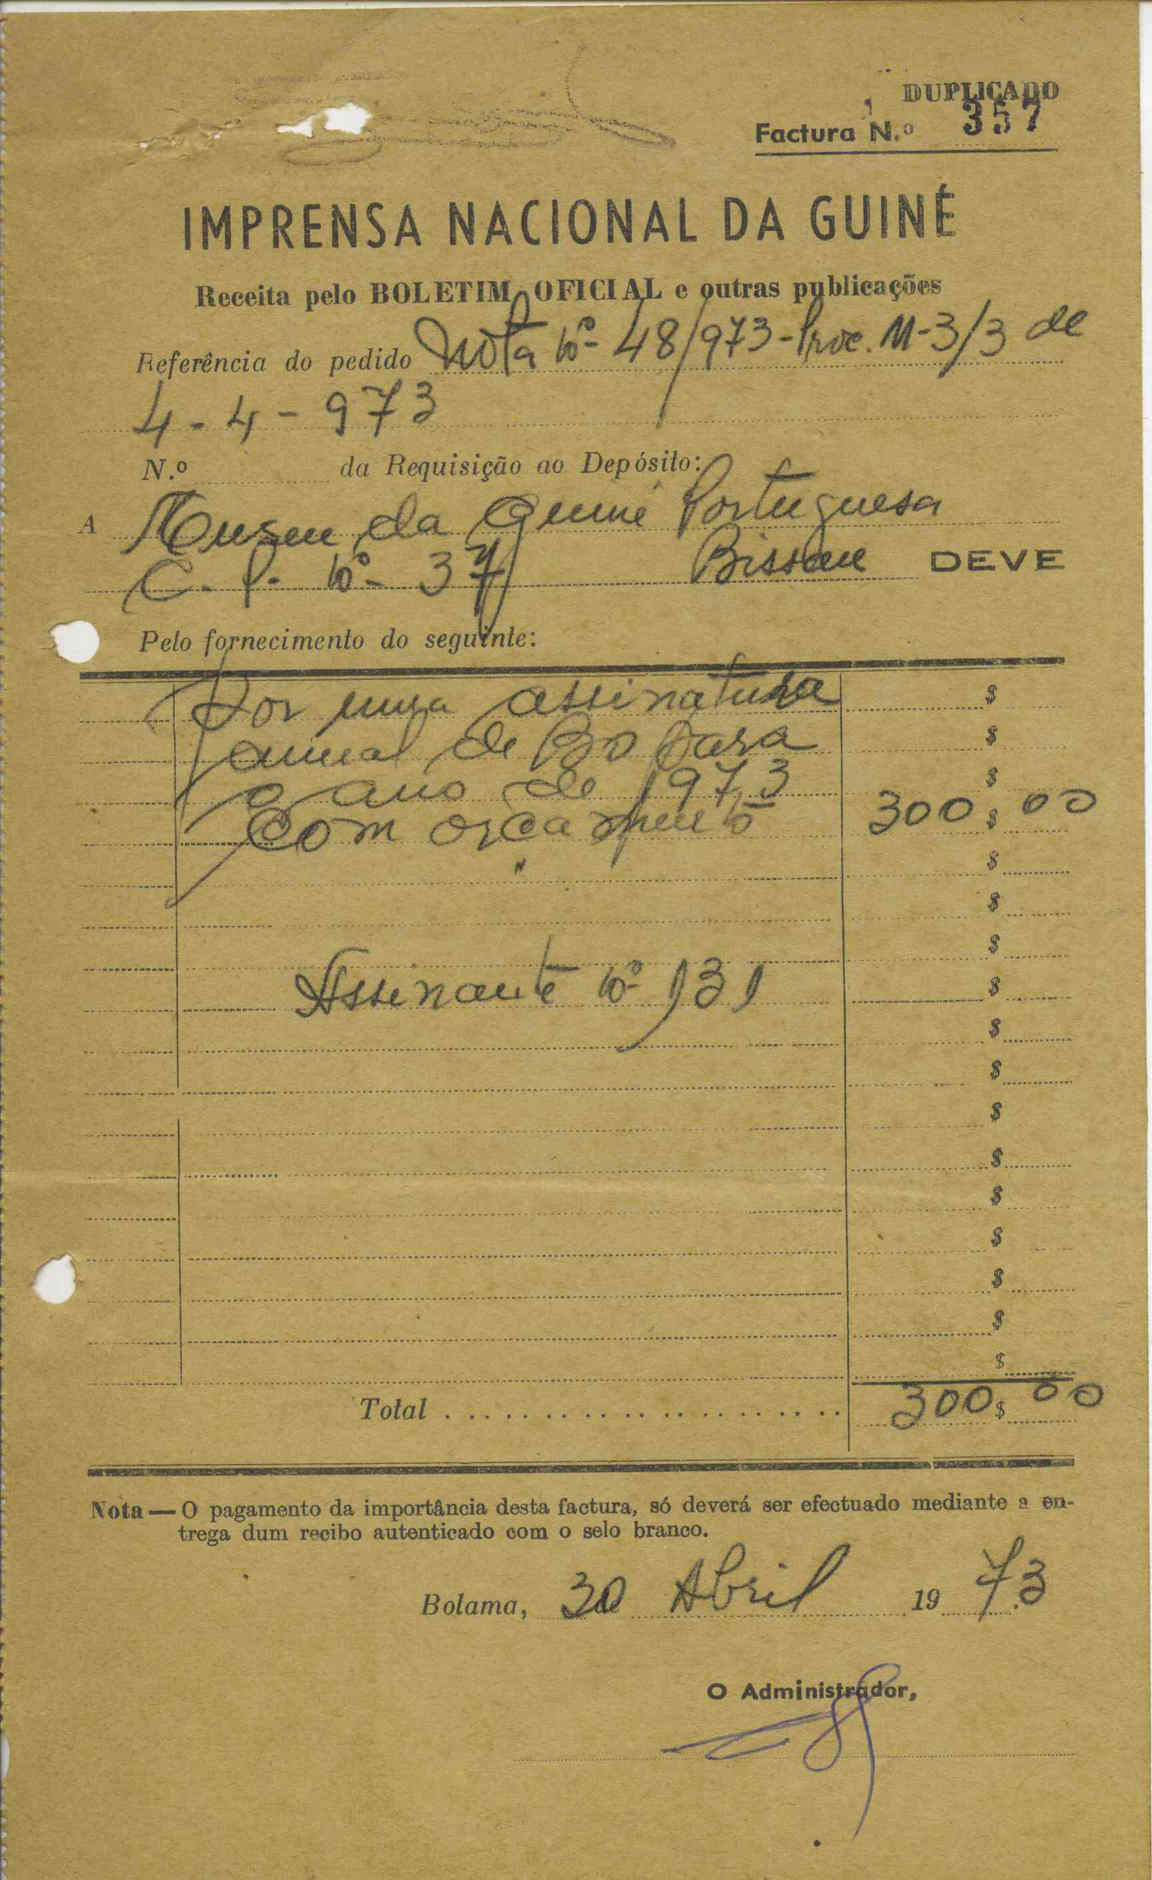 DUPLICADO
Factura N.º 357
IMPRENSA NACIONAL DA GUINÉ
Receita pelo BOLETIM OFICIAL e outras publicações
Referência do pedido Nota nº 48/973-Proc. M-3/3 de
4-4-973
N.º da Requisição ao Depósito:
A Museu da Guiné Portuguesa
C. P. nº 37 Bissau DEVE
Pelo fornecimento do seguinte:
Por uma assinatura $
anual de BO para $
o ano de 1973 $
Com orçamento 300$00
$
$
$
Assinante nº 131 $
$
$
$
$
$
$
$
$
$
Total 300$00
Nota — O pagamento da importância desta factura, só deverá ser efectuado mediante a en-
trega dum recibo autenticado com o selo branco.
Bolama, 30 Abril 1973
O Administrador,